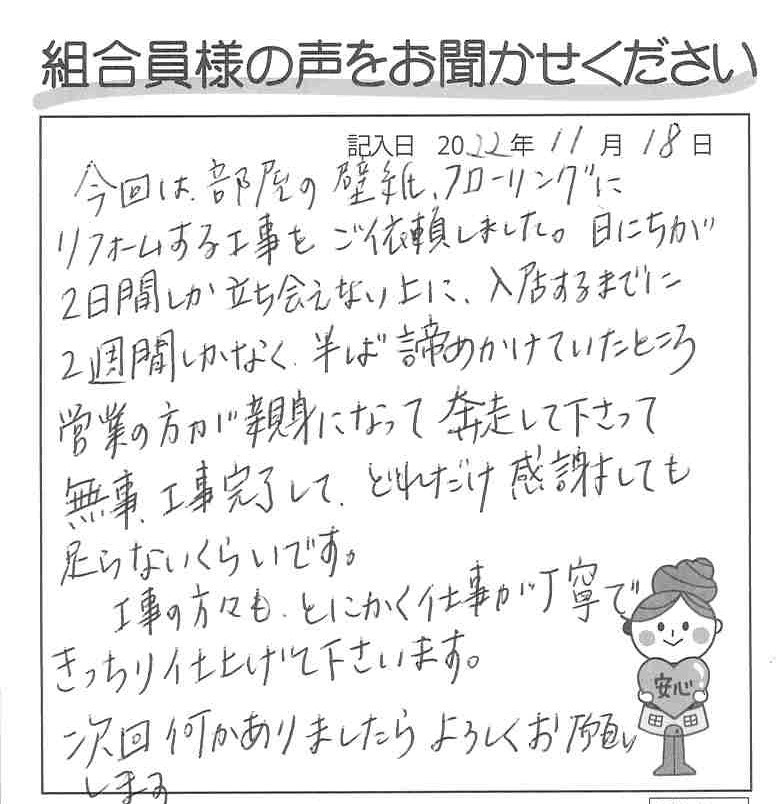 組合員様の声をお聞かせください
記入日 2022年 11月 18日
今回は、部屋の壁紙、フローリングに
リフォームする工事をご依頼しました。日にちが
2日間しか立ち会えない上に、入居するまでに
2週間しかなく、半ば諦めかけていたところ
営業の方が親身になって奔走して下さって
無事、工事完了して、どれだけ感謝しても
足らないくらいです。
工事の方々も、とにかく仕事が丁寧で
きっちり仕上げて下さいます。
次回何かありましたらよろしくお願い
します
安心